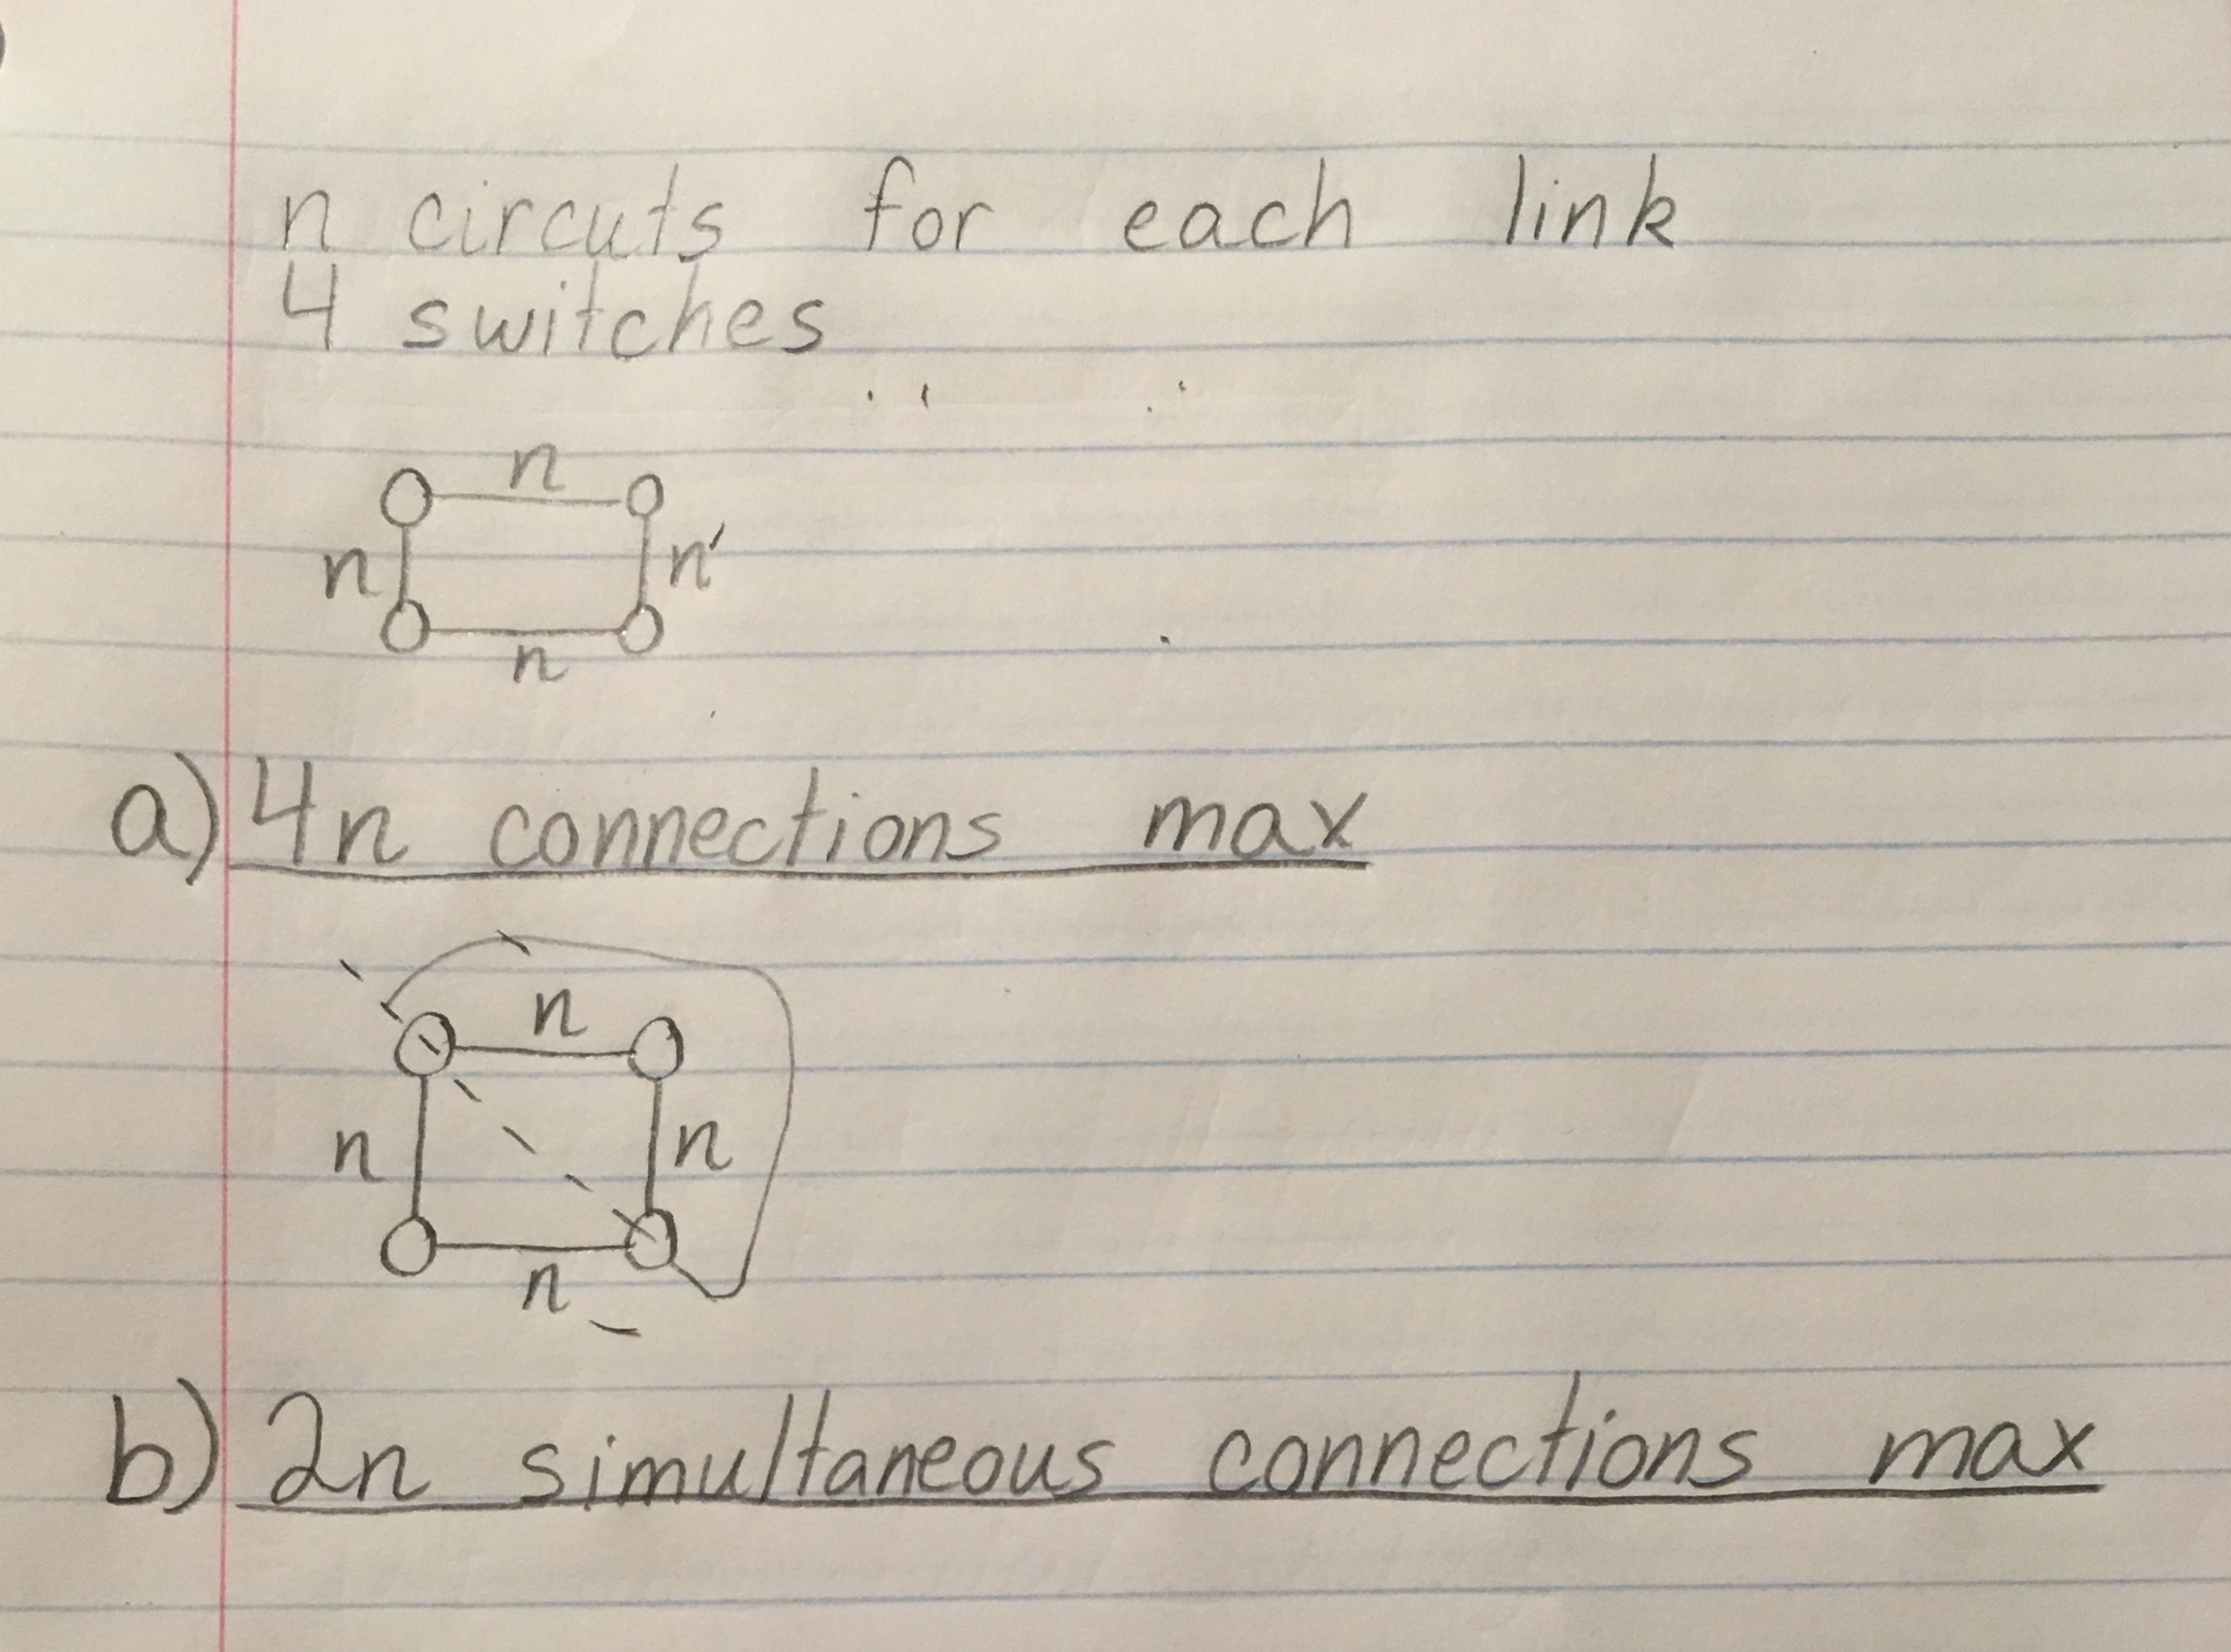 n circuts for each link
4 switches
n
n n
n
a) 4n connections max
n
n n
n
b) 2n simultaneous connections max